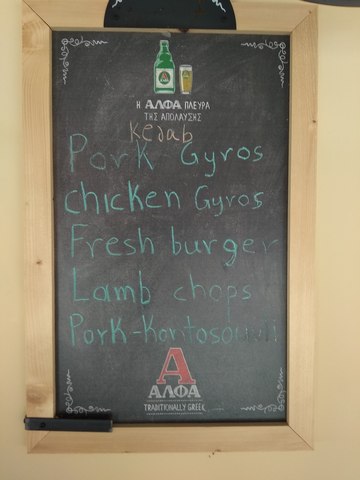 Η ΑΛΦΑ ΠΛΕΥΡΑ
ΤΗΣ ΑΠΟΛΑΥΣΗΣ
Kebab
Pork Gyros
chicken Gyros
Fresh burger
Lamb chops
Pork-Kontosouvli
Α
ΑΛΦΑ
TRADITIONALLY GREEK